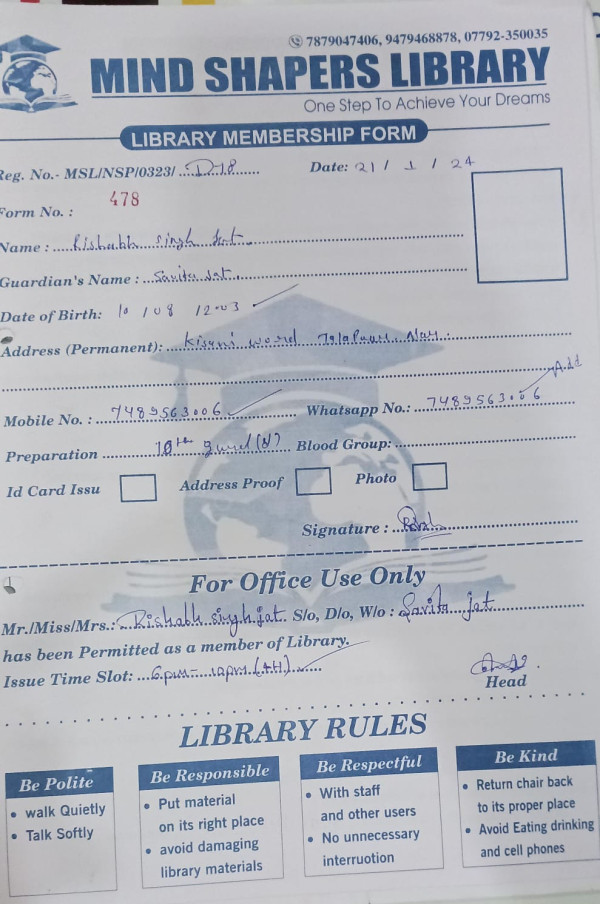 7879047406, 9479468878, 07792-350035
MIND SHAPERS LIBRARY
One Step To Achieve Your Dreams
LIBRARY MEMBERSHIP FORM
Reg. No.- MSL/NSP/0323/ D-18 Date: 21 / 1 / 24
Form No. : 478
Name : Rishabh singh Jat
Guardian's Name : Savita Jat
Date of Birth: 10 / 08 / 2003
Address (Permanent): Kisani word
Add
Mobile No. : 7489563006 Whatsapp No.: 7489563006
Preparation Blood Group:
Id Card Issu Address Proof Photo
Signature :
For Office Use Only
Mr./Miss/Mrs.: Rishabh singh jat. S/o, D/o, W/o : Savita jat
has been Permitted as a member of Library.
Issue Time Slot: 6pm - 10pm (4H)
Head
LIBRARY RULES
Be Polite
• walk Quietly
• Talk Softly
Be Responsible
• Put material
on its right place
• avoid damaging
library materials
Be Respectful
• With staff
and other users
• No unnecessary
interruotion
Be Kind
• Return chair back
to its proper place
• Avoid Eating drinking
and cell phones